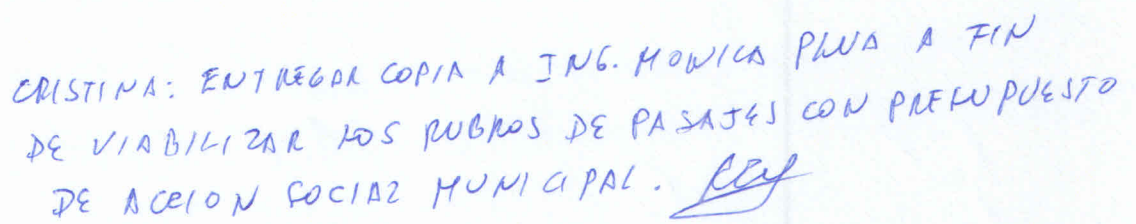 CRISTINA: ENTREGAR COPIA A ING. MONICA PLUA A FIN
DE VIABILIZAR LOS RUBROS DE PASAJES CON PRESUPUESTO
DE ACCION SOCIAL MUNICIPAL.